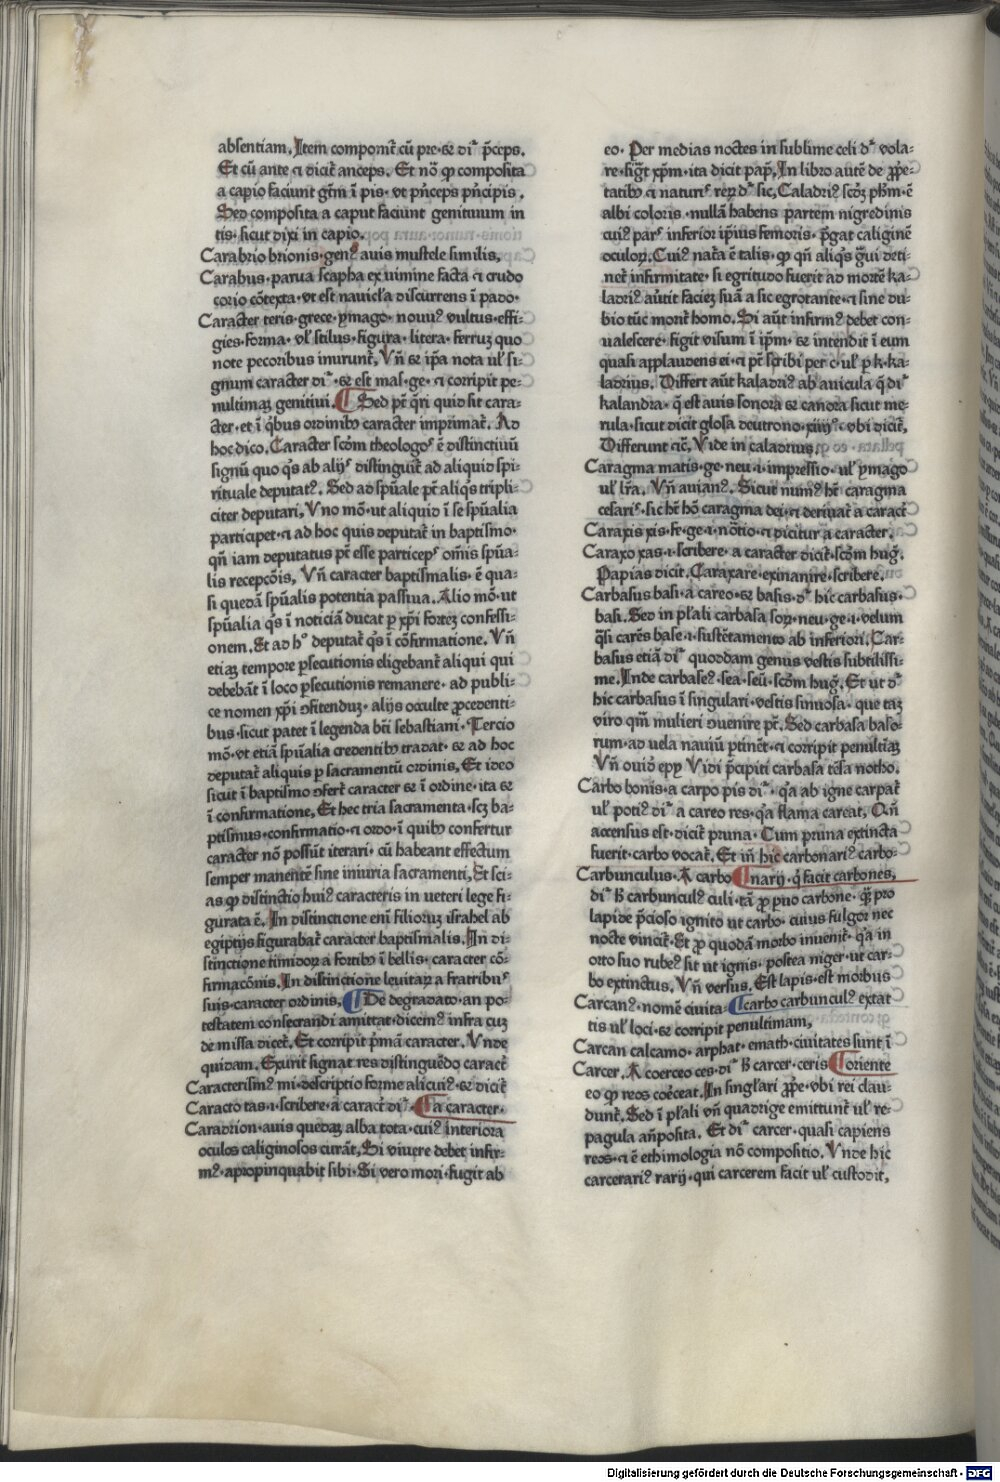 absentiam. Item componit̄ cū pre· ⁊ diᷣ p̄ceps.
Et cū ante ⁊ dicit̄ anceps. Et nō ꝙ composita
a capio faciunt gt̄m ī pis· vt pn̄ceps pn̄cipis.
Sed composita a caput faciunt genitiuum in
tis· sicut dixi in capio.
Carabrio brionis· genꝰ auis mustele similis,
Carabus· parua scapha ex uimine facta ⁊ crudo
corio cōtexta· vt est nauicl'a discurrens ī pado·
Caracter teris· grece· ymago· nouuꝰ vultus· effi-
gies· forma· vl' stilus· figura· litera· ferruꝫ quo
note pecoribus inurunt̄, Vn̄ ⁊ ip̄a nota ul' si-
gnum caracter diᷣ· ⁊ est mas· ge· ⁊ corripit pe-
nultimaꝫ genitiui. ¶ Sed pt̄ q̄ri quid sit cara-
cter· et ī q̄bus ordinibꝰ caracter imprimat̄. Ad
hoc dico. Caracter scd̄m theologoˢ ē distinctiuū
signū quo q̄s ab alijˢ distinguit̄ ad aliquid spi-
rituale deputatꝰ. Sed ad spūale pt̄ aliq̄s tripli-
citer deputari, Vno mō· ut aliquid ī se spūalia
participet· ⁊ ad hoc quis deputat̄ in baptismo·
qn̄ iam deputatus pt̄ esse particepˢ om̄is spūa-
lis recepcōis, Vn̄ caracter baptismalis· ē qua-
si quedā spūalis potentia passiua. Alio mō· ut
spūalia q̄s ī noticiā ducat p xp̄i fortez confessi-
onem. Et ad hᵒ deputat̄ q̄s ī cōfirmatione. Vn̄
etiaꝫ tempore psecutionis eligebant̄ aliqui qui
debebāt ī loco psecutionis remanere· ad publi-
ce nomen xp̄i ꝯfitenduꝫ· alijs occulte ꝓcedenti-
bus· sicut patet ī legenda bt̄i sebastiani. Tercio
mō· vt etiā spūalia credentibꝰ tradat· ⁊ ad hoc
deputat̄ aliquis p sacramentū ordinis, Et ideo
sicut ī baptismo ꝯfert̄ caracter ⁊ ī ordine· ita ⁊
ī confirmatione, Et hec tria sacramenta· scꝫ ba-
ptismus· confirmatio· ⁊ ordo· ī quibꝰ confertur
caracter nō possūt iterari· cū habeant effectum
semper manentē sine iniuria sacramenti, Et sci-
as ꝙ distinctio huiꝰ caracteris in ueteri lege fi-
gurata ē. In distinctione enī filioruꝫ israhel ab
egiptijs figurabat̄ caracter baptismalis. In di-
stinctione timidoꝝ a fortibꝰ ī bellis· caracter cō-
firmacōnis, In distinctione leuitaꝝ a fratribuˢ
suis· caracter ordinis, ¶ De degradato· an po-
testatem consecrandi amittat· dicemꝰ infra cuꝫ
de missa dicet̄. Et corripit pm̄ā caracter. Vnde
quidam. Exurit signat res distinguēdo caract̄
Caracterismꝰ mi· descriptio forme alicuiꝰ· ⁊ dicit̄
Caracto tas· ı· scribere· a caract̄ diᷣ· ¶ a caracter·
Caradrion· auis quedaꝫ alba tota· cuiꝰ interiora
oculos caliginosos curāt, Si viuere debet infir-
mꝰ· apropinquabit sibi· Si vero mori· fugit ab
eo· Per medias noctes in sublime celi dᷣ vola-
re· figᷣt xp̄m· ita dicit pap̄. In libro autē de ꝓp̄e-
tatibꝰ ⁊ naturiˢ reꝝ dᷣ sic, Caladriꝰ scd̄ꝫ ph̄m· ē
albi coloris· nullā habens partem nigredinis
cuiꝰ parˢ inferior ip̄ius femoris· p̄gat caliginē
oculoꝝ. Cuiꝰ nat̄a ē talis· ꝙ qn̄ aliq̄s ḡui deti-
net̄ infirmitate· si egritudo fuerit ad mortē ka-
ladriꝰ aūtit facieꝫ suā a sic egrotante· ⁊ sine du-
bio tūc morit̄ homo. Si aūt infirmꝰ debet con-
ualescere· figit visum ī ip̄m· ⁊ intendit ī eum
quasi applaudens ei· ⁊ pt̄ scribi per c· ul' p k· ka-
ladrius. Differt aūt kaladriꝰ ab auicula q̄ diᷣ
kalandra· q̄ est auis sonora ⁊ canora sicut me-
rula· sicut dicit glosa deutrono· xiiijᵒ· c· vbi dicit̄,
Differunt ⁊c̄, Vide in caladrius.
Caragma matis· ge· neu· ı· impressio· ul' ymago
ul' lr̄a. Vn̄ auianꝰ. Sicut numꝰ ht̄ caragma
cesariˢ· sic ht̄ hō caragma dei· ⁊ deriuat̄ a caract̄
Caraxis xis· fe· ge· ı· nōtio· ⁊ dicitur a caracter.
Caraxo xas· ı· scribere· a caracter dicit̄· scd̄m hug̃.
Papias dicit. Caraxare· exinanire· scribere.
Carbasus basi· a careo· ⁊ basis· dᷣ hic carbasus·
basi. Sed in pl'ali carbasa soꝝ· neu· ge· ı· velum
q̄si carēs base· ı· sustētamento ab inferiori. Car-
basus etiā diᷣ quoddam genus vestis subtilissi-
me. Inde carbaseꝰ· sea· seū· scd̄m hug̃. Et ut dᷣ
hic carbasus ī singulari· vestis sinuosa· que taꝫ
viro qm̄ mulieri ꝯuenire pt̄. Sed carbasa baso-
rum· ad uela nauiū ptinēt· ⁊ corripit penultiaꝫ
Vn̄ ouidꝰ epꝰ Vidi p̄cipiti carbasa tēsa notho.
Carbo bonis· a carpo pis diᷣ· qꝛa ab igne carpat̄
ul' potiꝰ diᷣ a careo res· qꝛa flama careat, Qn̄
accensus est· dicit̄ pruna· Cum pruna extincta
fuerit· carbo vocat̄. Et in̄ hic carbonariꝰ carbo-
Carbunculus· A carbo ¶ narij· q̄ facit carbones,
diᷣ h̄ carbunculꝰ culi· tā ꝓ puo carbone· qꝫ pro
lapide p̄cioso ignito ut carbo· cuius fulgor nec
nocte vincit̄· Et ꝓ quodā morbo inuenit̄· qꝛa in
orto suo rubeꝰ sit ut ignis· postea niger· ut car-
bo extinctus. Vn̄ versus. Est lapis· est morbus
Carcanꝰ· nomē ciuita- ¶ carbo carbunculꝰ extat
tis ul' loci· ⁊ corripit penultimam,
Carcan calcamo· arphat· emath· ciuitates sunt ī
Carcer. A coerceo ces· diᷣ h̄ carcer· ceris ¶ oriente
eo ꝙ reos coēceat. In singl'ari ꝓp̄e· vbi rei clau-
dunt̄. Sed ī pl'ali vn̄ quadrige emittunt̄ ul' re-
pagula an̄posita. Et diᷣ carcer· quasi capiens
reos· ⁊ ē ethimologia nō compositio. Vnde hic
carcerariꝰ rarij· qui carcerem facit ul' custodit,
Digitalisierung gefördert durch die Deutsche Forschungsgemeinschaft - DFG